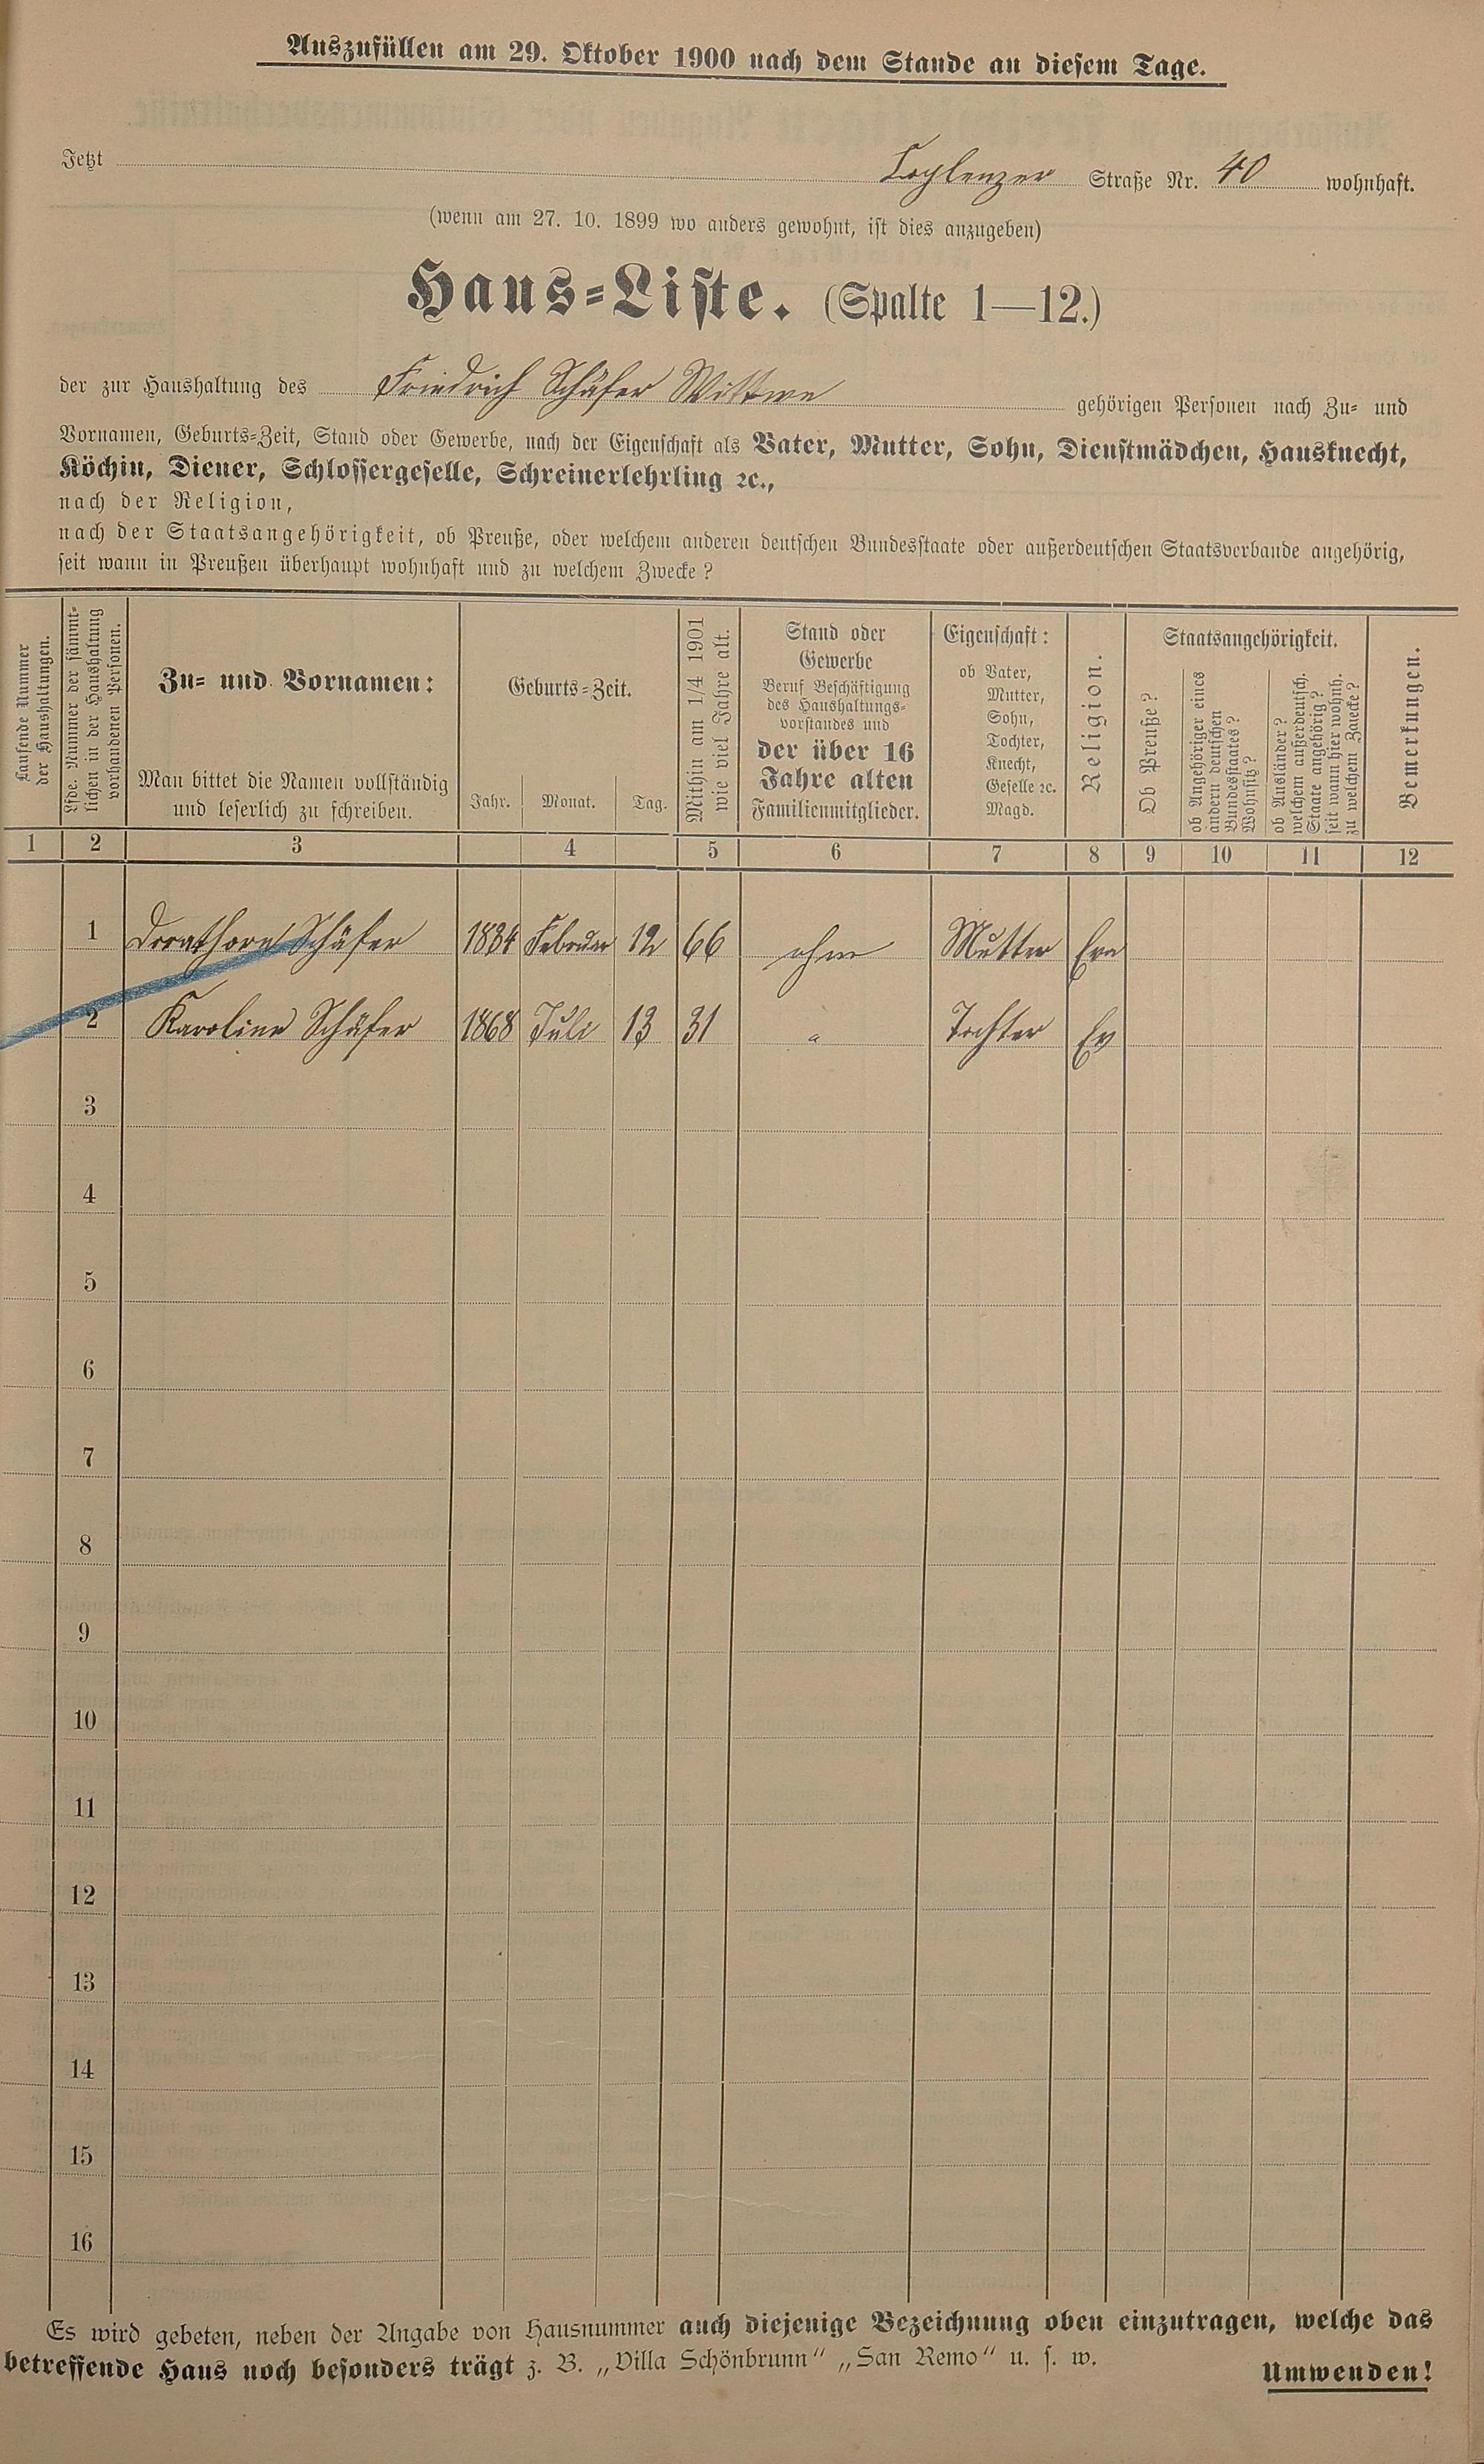 Auszufüllen am 29. Oktober 1900 nach dem Stande an diesem Tage.
Jetzt Coblenzer Straße Nr. 40 wohnhaft.
(wenn am 27. 10. 1899 wo anders gewohnt, ist dies anzugeben)
Haus-Liste. (Spalte 1—12.)
der zur Haushaltung des Friedrich Schäfer Wittwe gehörigen Personen nach Zu- und
Vornamen, Geburts-Zeit, Stand oder Gewerbe, nach der Eigenschaft als Vater, Mutter, Sohn, Dienstmädchen, Hausknecht,
Köchin, Diener, Schlossergeselle, Schreinerlehrling ꝛc.,
nach der Religion,
nach der Staatsangehörigkeit, ob Preuße, oder welchem anderen deutschen Bundesstaate oder außerdeutschen Staatsverbande angehörig,
seit wann in Preußen überhaupt wohnhaft und zu welchem Zwecke?
Laufende Nummer
der Haushaltungen.
Lfde. Nummer der sämmt-
lichen in der Haushaltung
vorhandenen Personen.
Zu- und Vornamen:
Man bittet die Namen vollständig
und leserlich zu schreiben.
Geburts-Zeit.
Jahr. Monat. Tag.
Mithin am 1/4 1901
wie viel Jahre alt.
Stand oder
Gewerbe
Beruf Beschäftigung
des Haushaltungs-
vorstandes und
der über 16
Jahre alten
Familienmitglieder.
Eigenschaft:
ob Vater,
Mutter,
Sohn,
Tochter,
Knecht,
Geselle ꝛc.
Magd.
Religion.
Staatsangehörigkeit.
Ob Preuße?
ob Angehöriger eines
andern deutschen
Bundesstaates?
Wohnsitz?
ob Ausländer?
welchem außerdeutsch.
Staate angehörig?
seit wann hier wohnh.
zu welchem Zwecke?
Bemerkungen.
1 2 3 4 5 6 7 8 9 10 11 12
1 Dorathora Schäfer 1834 Februar 12 66 ohne Mutter Eva
2 Karoline Schäfer 1868 Juli 13 31 " Tochter Ev
3
4
5
6
7
8
9
10
11
12
13
14
15
16
Es wird gebeten, neben der Angabe von Hausnummer auch diejenige Bezeichnung oben einzutragen, welche das
betreffende Haus noch besonders trägt z. B. „Villa Schönbrunn" „San Remo" u. s. w.
Umwenden!